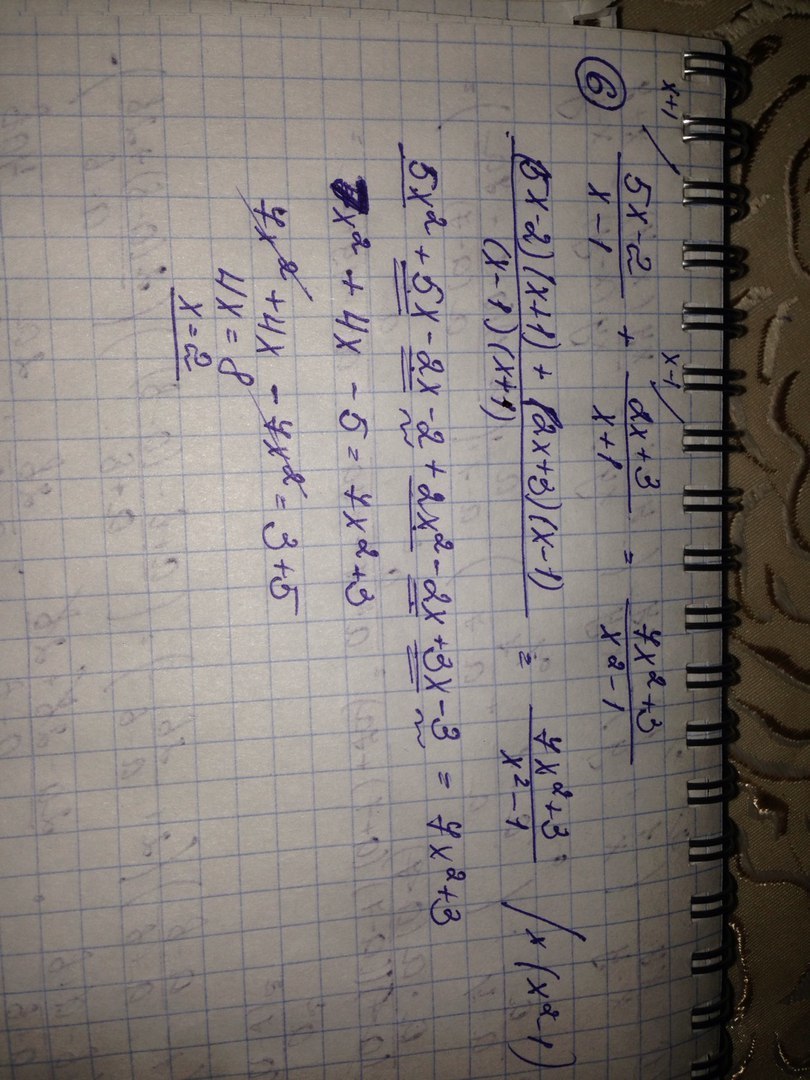 x+1 x-1
⑥ (5x-2)/(x-1) + (2x+3)/(x+1) = (7x²+3)/(x²-1)
((5x-2)(x+1) + (2x+3)(x-1))/((x-1)(x+1)) = (7x²+3)/(x²-1) / x (x²-1)
5x² + 5x - 2x - 2 + 2x² - 2x + 3x - 3 = 7x²+3
7x² + 4x - 5 = 7x²+3
7x² + 4x - 7x² = 3+5
4x = 8
x = 2